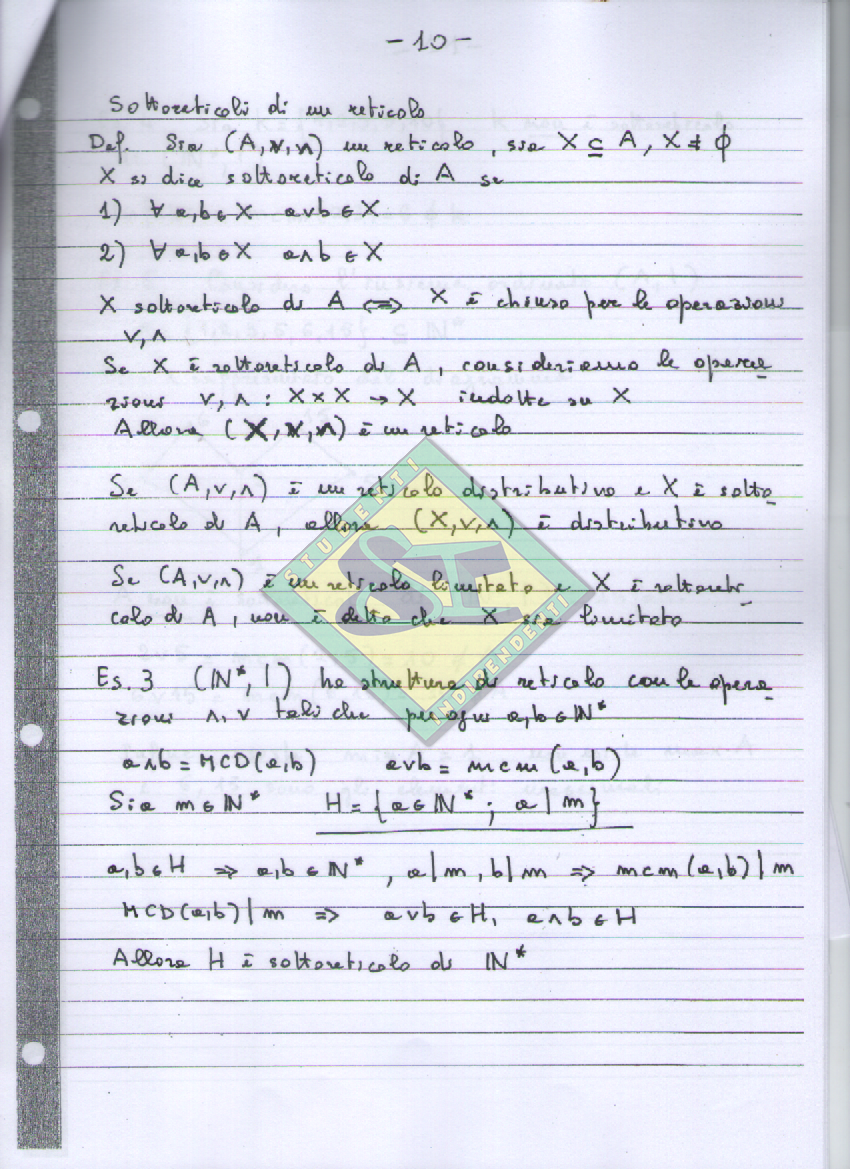 -10-
Sottoreticoli di un reticolo
Def. Sia (A,∨,∧) un reticolo, sia X ⊆ A, X ≠ ∅
X si dice sottoreticolo di A se
1) ∀ a,b ∈ X a∨b ∈ X
2) ∀ a,b ∈ X a∧b ∈ X
X sottoreticolo di A ⟺ X è chiuso per le operazioni
∨,∧
Se X è sottoreticolo di A, consideriamo le opera
zioni ∨,∧ : X×X → X indotte su X
Allora (X,∨,∧) è un reticolo
Se (A,∨,∧) è un reticolo distributivo e X è sotto
reticolo di A, allora (X,∨,∧) è distributivo
Se (A,∨,∧) è un reticolo limitato e X è sottoreti
colo di A, non è detto che X sia limitato
Es. 3 (ℕ*, |) ha struttura di reticolo con le opera
zioni ∧,∨ tali che per ogni a,b ∈ ℕ*
a∧b = MCD(a,b) a∨b = mcm(a,b)
Sia m ∈ ℕ* H = {a ∈ ℕ* ; a | m}
a,b ∈ H ⇒ a,b ∈ ℕ*, a|m, b|m ⇒ mcm(a,b)|m
MCD(a,b)|m ⇒ a∨b ∈ H, a∧b ∈ H
Allora H è sottoreticolo di ℕ*
STUDENTI
SI
INDIPENDENTI